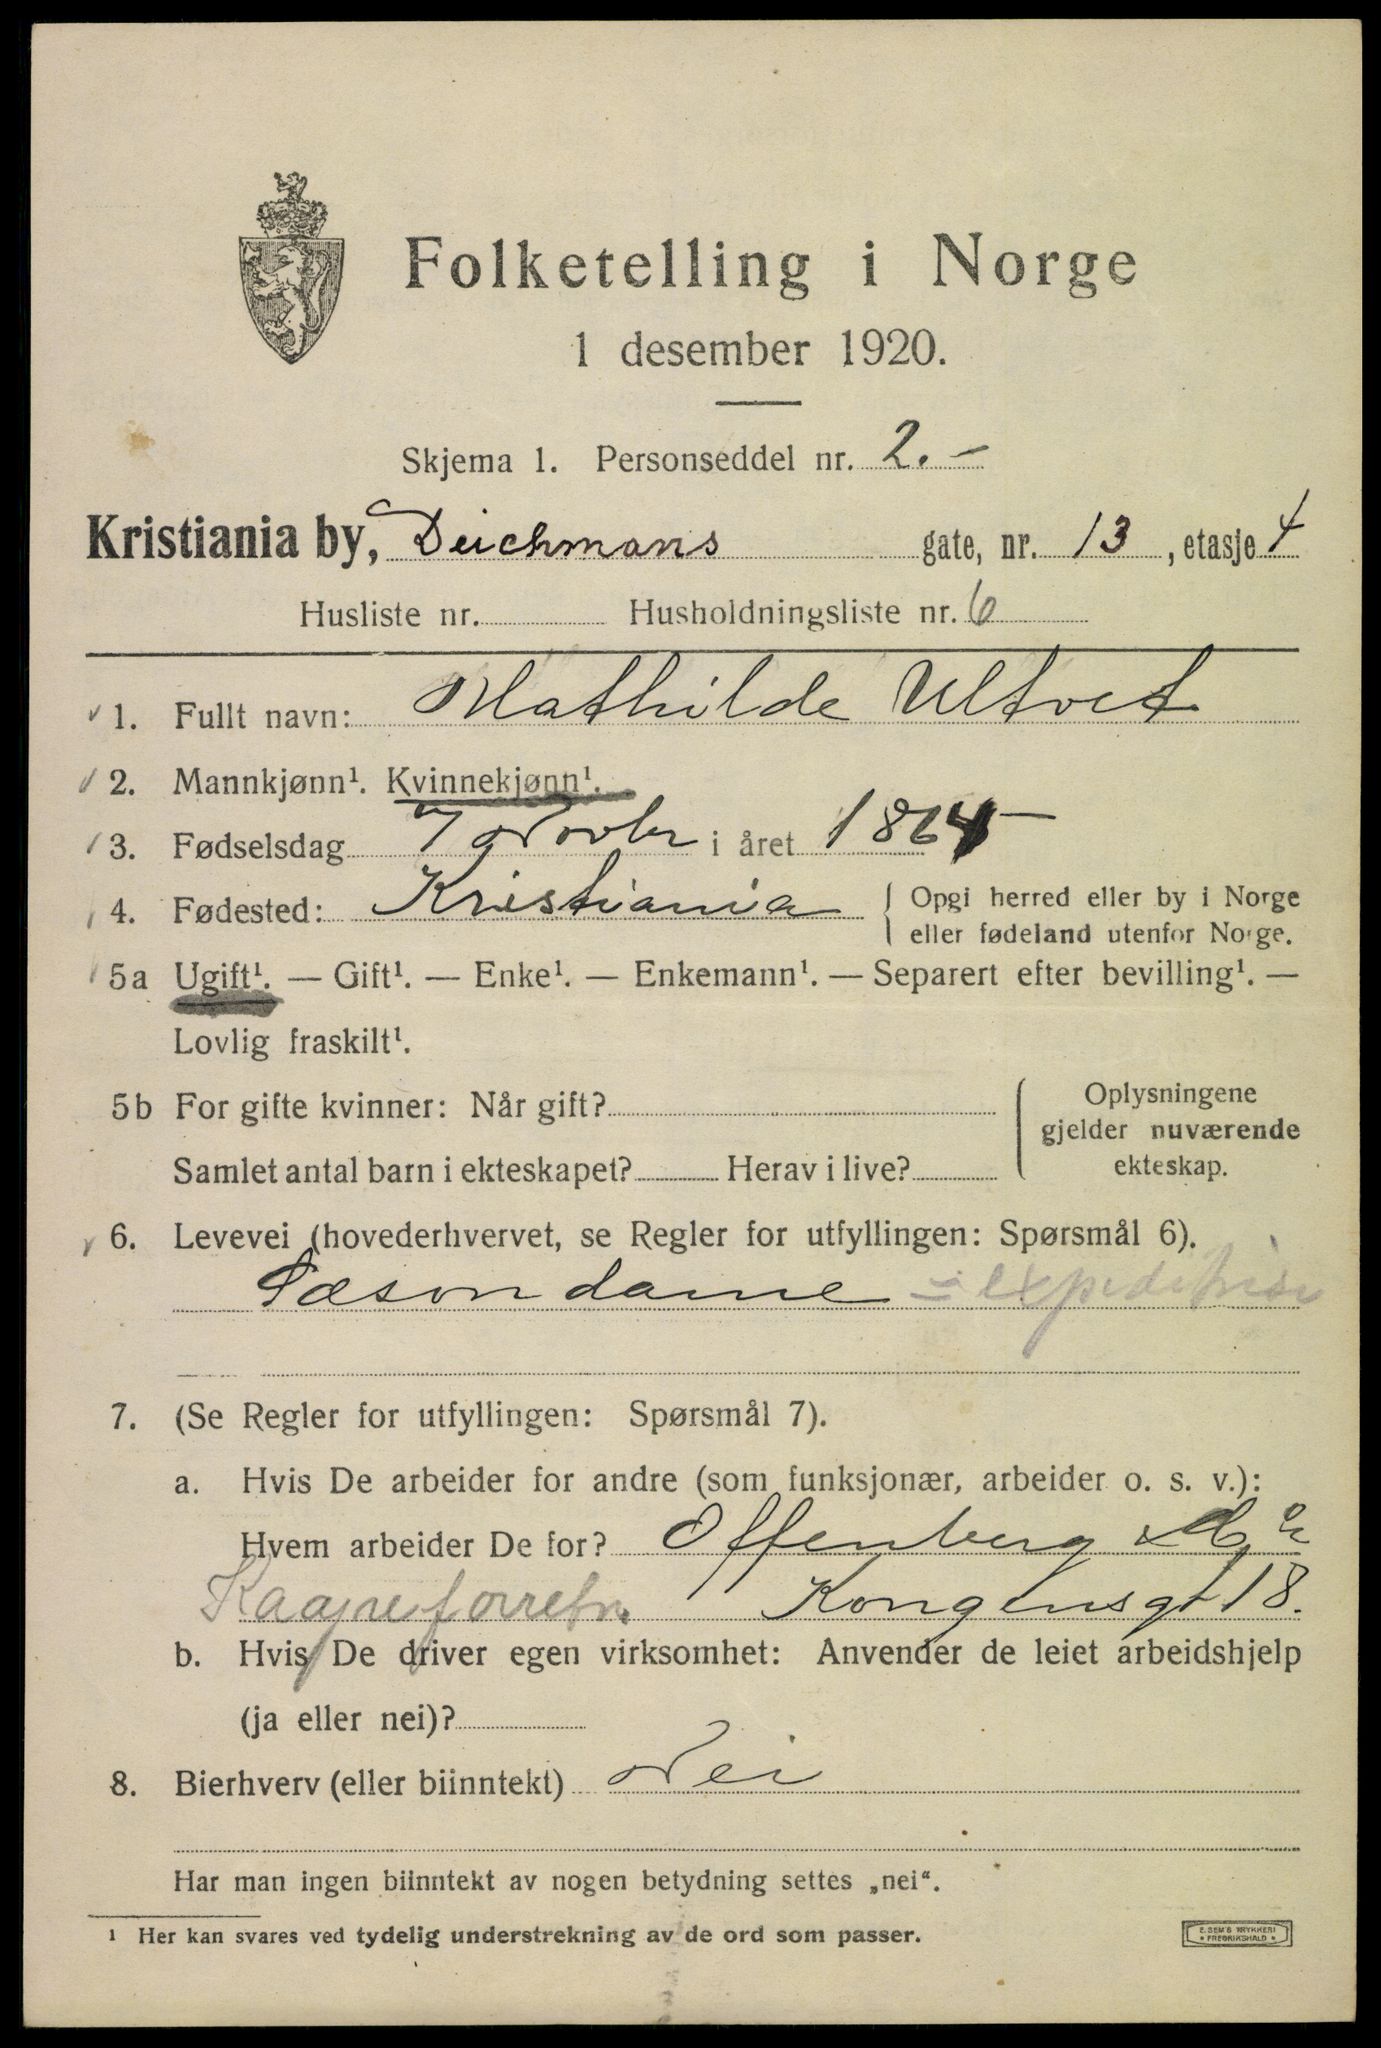 Folketelling i Norge
1 desember 1920.
Skjema 1. Personseddel nr. 2.-
Kristiania by, Deichmans gate, nr. 13, etasje 4
Husliste nr. Husholdningsliste nr. 6
1. Fullt navn: Mathilde Ultvet
2. Mannkjønn¹. Kvinnekjønn¹.
3. Fødselsdag 7 Novbr i året 1864
4. Fødested: Kristiania { Opgi herred eller by i Norge
eller fødeland utenfor Norge.
5a Ugift¹. — Gift¹. — Enke¹. — Enkemann¹. — Separert efter bevilling¹. —
Lovlig fraskilt¹.
5b For gifte kvinner: Når gift?
Oplysningene
gjelder nuværende
ekteskap.
Samlet antal barn i ekteskapet? Herav i live?
6. Levevei (hovederhvervet, se Regler for utfyllingen: Spørsmål 6).
Sæsondame = expeditrise
7. (Se Regler for utfyllingen: Spørsmål 7).
a. Hvis De arbeider for andre (som funksjonær, arbeider o. s. v.):
Hvem arbeider De for? Offenberg & Co
Kaapeforretn. Kongensgt 18.
b. Hvis De driver egen virksomhet: Anvender de leiet arbeidshjelp
(ja eller nei)?
8. Bierhverv (eller biinntekt) Nei
Har man ingen biinntekt av nogen betydning settes „nei“.
¹ Her kan svares ved tydelig understrekning av de ord som passer.
E. SEM'S TRYKKERI
FREDRIKSHALD